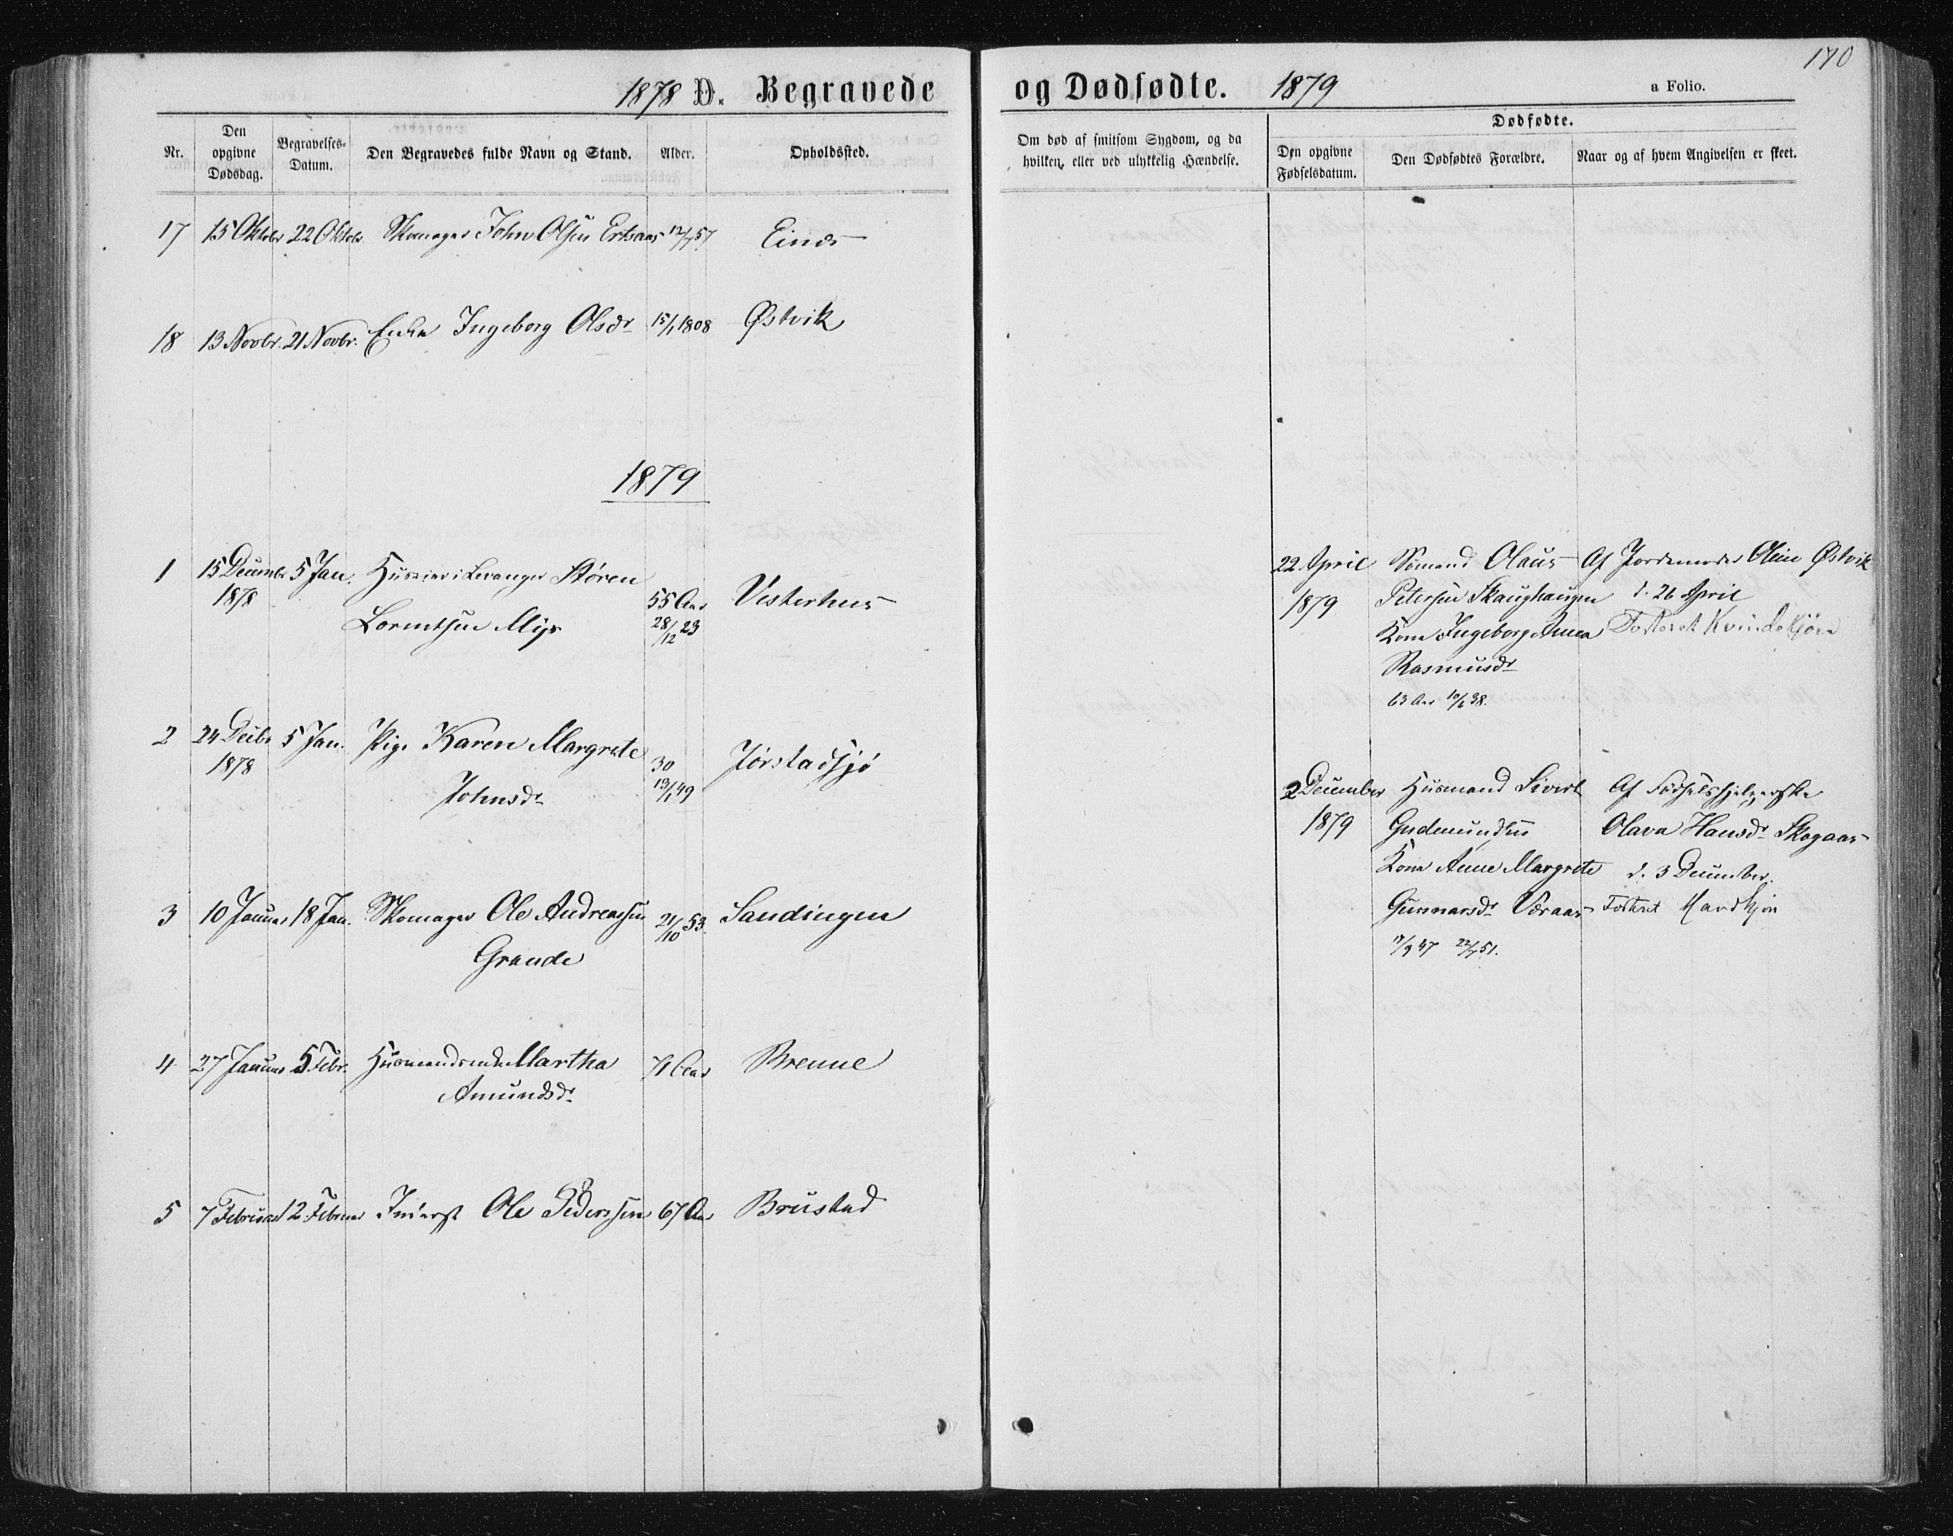 170
1878 D. Begravede og Dødfødte. 1879 a Folio.
Nr.
Den opgivne Dødsdag.
Begravelses-Datum.
Den Begravedes fulde Navn og Stand.
Alder.
Opholdssted.
Om død af smitsom Sygdom, og da hvilken, eller ved ulykkelig Hændelse.
Dødfødte.
Den opgivne Fødselsdatum.
Den Dødfødtes Forældre.
Naar og af hvem Angivelsen er skeet.
17 15 Oktobr 22 Oktobr. Skomager John Olsen Ertsaas 12/7 57 Einæs
18 13 Novbr. 21 Novbr. Enke Ingeborg Olsdr 15/1 1808 Østvik
1879
1 15 Decembr 5 Jan. Huseier i Levanger Støren 55 Aar Vesterhus
1878 Lorentsen Myr 28/12 23
2 24 Decbr 5 Jan. Pige Karen Margrete 30 Jørstadsjø
1878 Johnsdr 13/1 49
3 10 Januar 18 Jan. Skomager Ole Andreassen 21/10 53. Sandingen
Grande
4 27 Januar 5 Febr. Husmandsenke Martha 71 Aar Brenne
Amundsdr
5 7 Februar 12 Februar Inderst Ole Pedersen 67 Aar Brustad
22 April Sømand Olaus Af Jordemoder Oline Østvik
1879 Petersen Skaughaugen d. 26 April
Kone Ingeborg Anna Fosteret Kvindekjøn
Rasmusdr
10/6 38.
2 December Husmand Sivert Af Fødselshjelperske
1879 Gudmundsen Olava Hansdr Skogaas
Kone Anne Margrete d. 3 December.
Gunnarsdr Fosteret Mandkjøn
47 22/7 51.